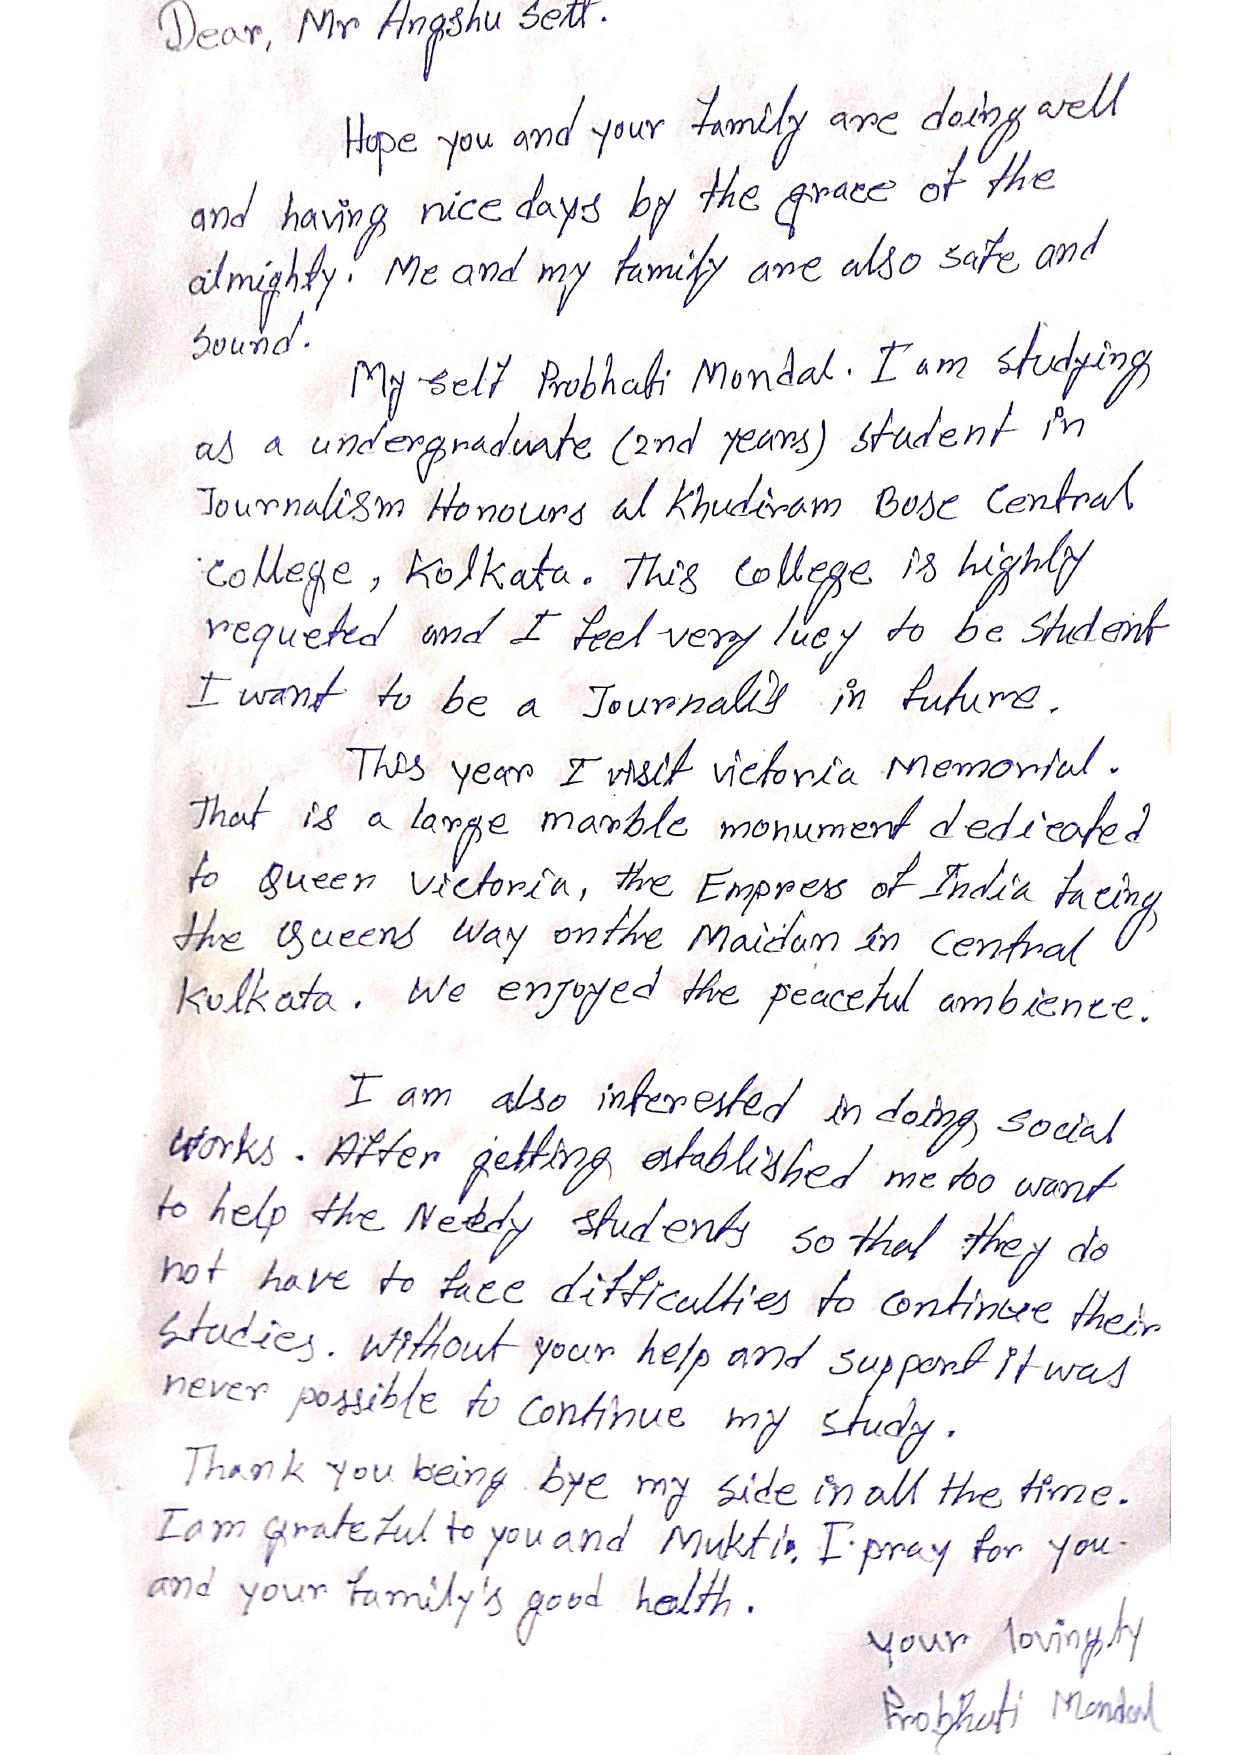 Dear, Mr Angshu Sett.
Hope you and your family are doing well
and having nice days by the grace of the
almighty. Me and my family are also safe and
sound.
My self Probhati Mondal. I am studying
as a undergraduate (2nd years) student in
Journalism Honours at Khudiram Bose Central
College, Kolkata. This college is highly
requeted and I feel very lucy to be student
I want to be a Journalis in future.
This year I visit victoria Memorial.
That is a large marble monument dedicated
to Queen Victoria, the Empress of India facing
the Queens Way on the Maidan in Central
Kolkata. We enjoyed the peaceful ambience.
I am also interested in doing social
works. After getting established me too want
to help the Needy students so that they do
not have to face difficulties to continue their
studies. Without your help and support it was
never possible to continue my study.
Thank you being bye my side in all the time.
I am grateful to you and Mukti. I pray for you
and your family's good helth.
your lovingly
Probhati Mondal